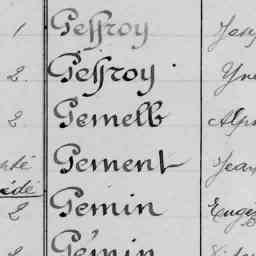 1 Geffroy
2 Geffroy Yve
2 Gemelb Alph
Gement Jean
2 Gemin Eugè
Gémin